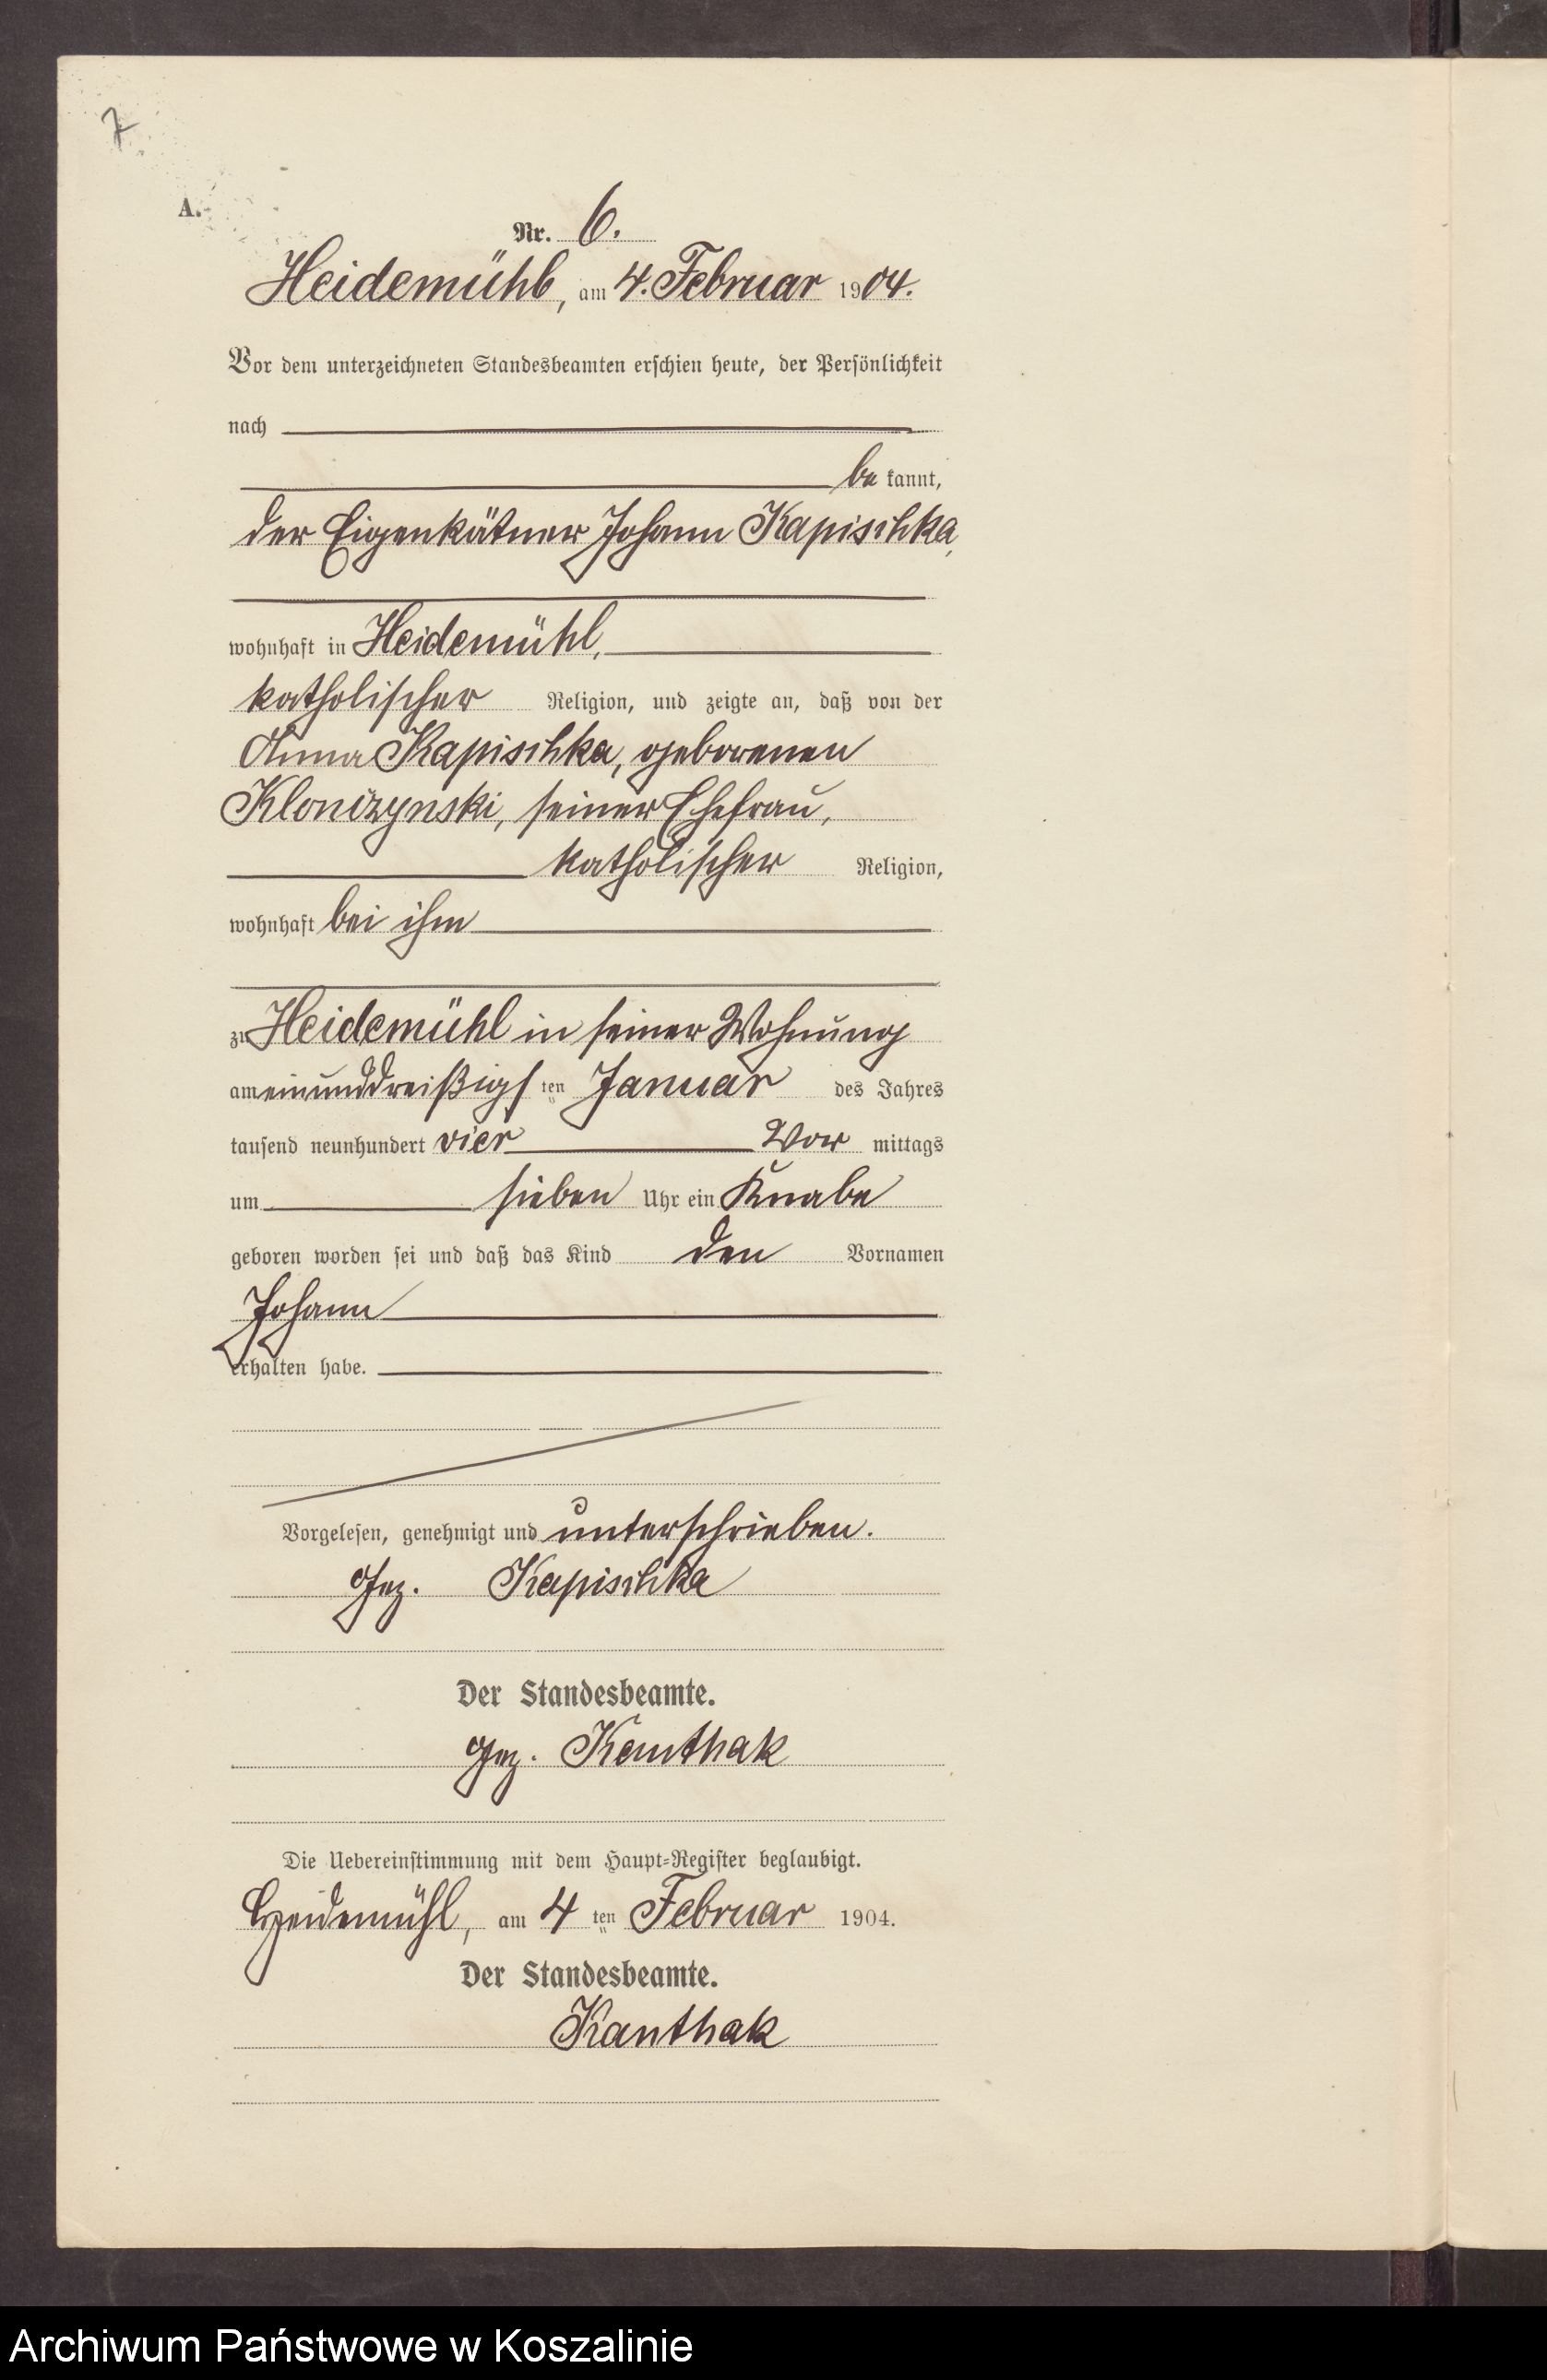 7
A.
Nr. 6.
Heidemühl, am 4. Februar 1904.
Vor dem unterzeichneten Standesbeamten erschien heute, der Persönlichkeit
nach
be kannt,
der Eigenkätner Johann Kapischka,
wohnhaft in Heidemühl,
katholischer Religion, und zeigte an, daß von der
Anna Kapischka, geborenen
Klonczynski, seiner Ehefrau,
katholischer Religion,
wohnhaft bei ihm
zu Heidemühl in seiner Wohnung
am einunddreißigs ten Januar des Jahres
tausend neunhundert vier Vor mittags
um sieben Uhr ein Knabe
geboren worden sei und daß das Kind den Vornamen
Johann
erhalten habe.
Vorgelesen, genehmigt und unterschrieben.
Gez. Kapischka
Der Standesbeamte.
Gez. Kanthak
Die Uebereinstimmung mit dem Haupt-Register beglaubigt.
Heidemühl, am 4 ten Februar 1904.
Der Standesbeamte.
Kanthak
Archiwum Państwowe w Koszalinie